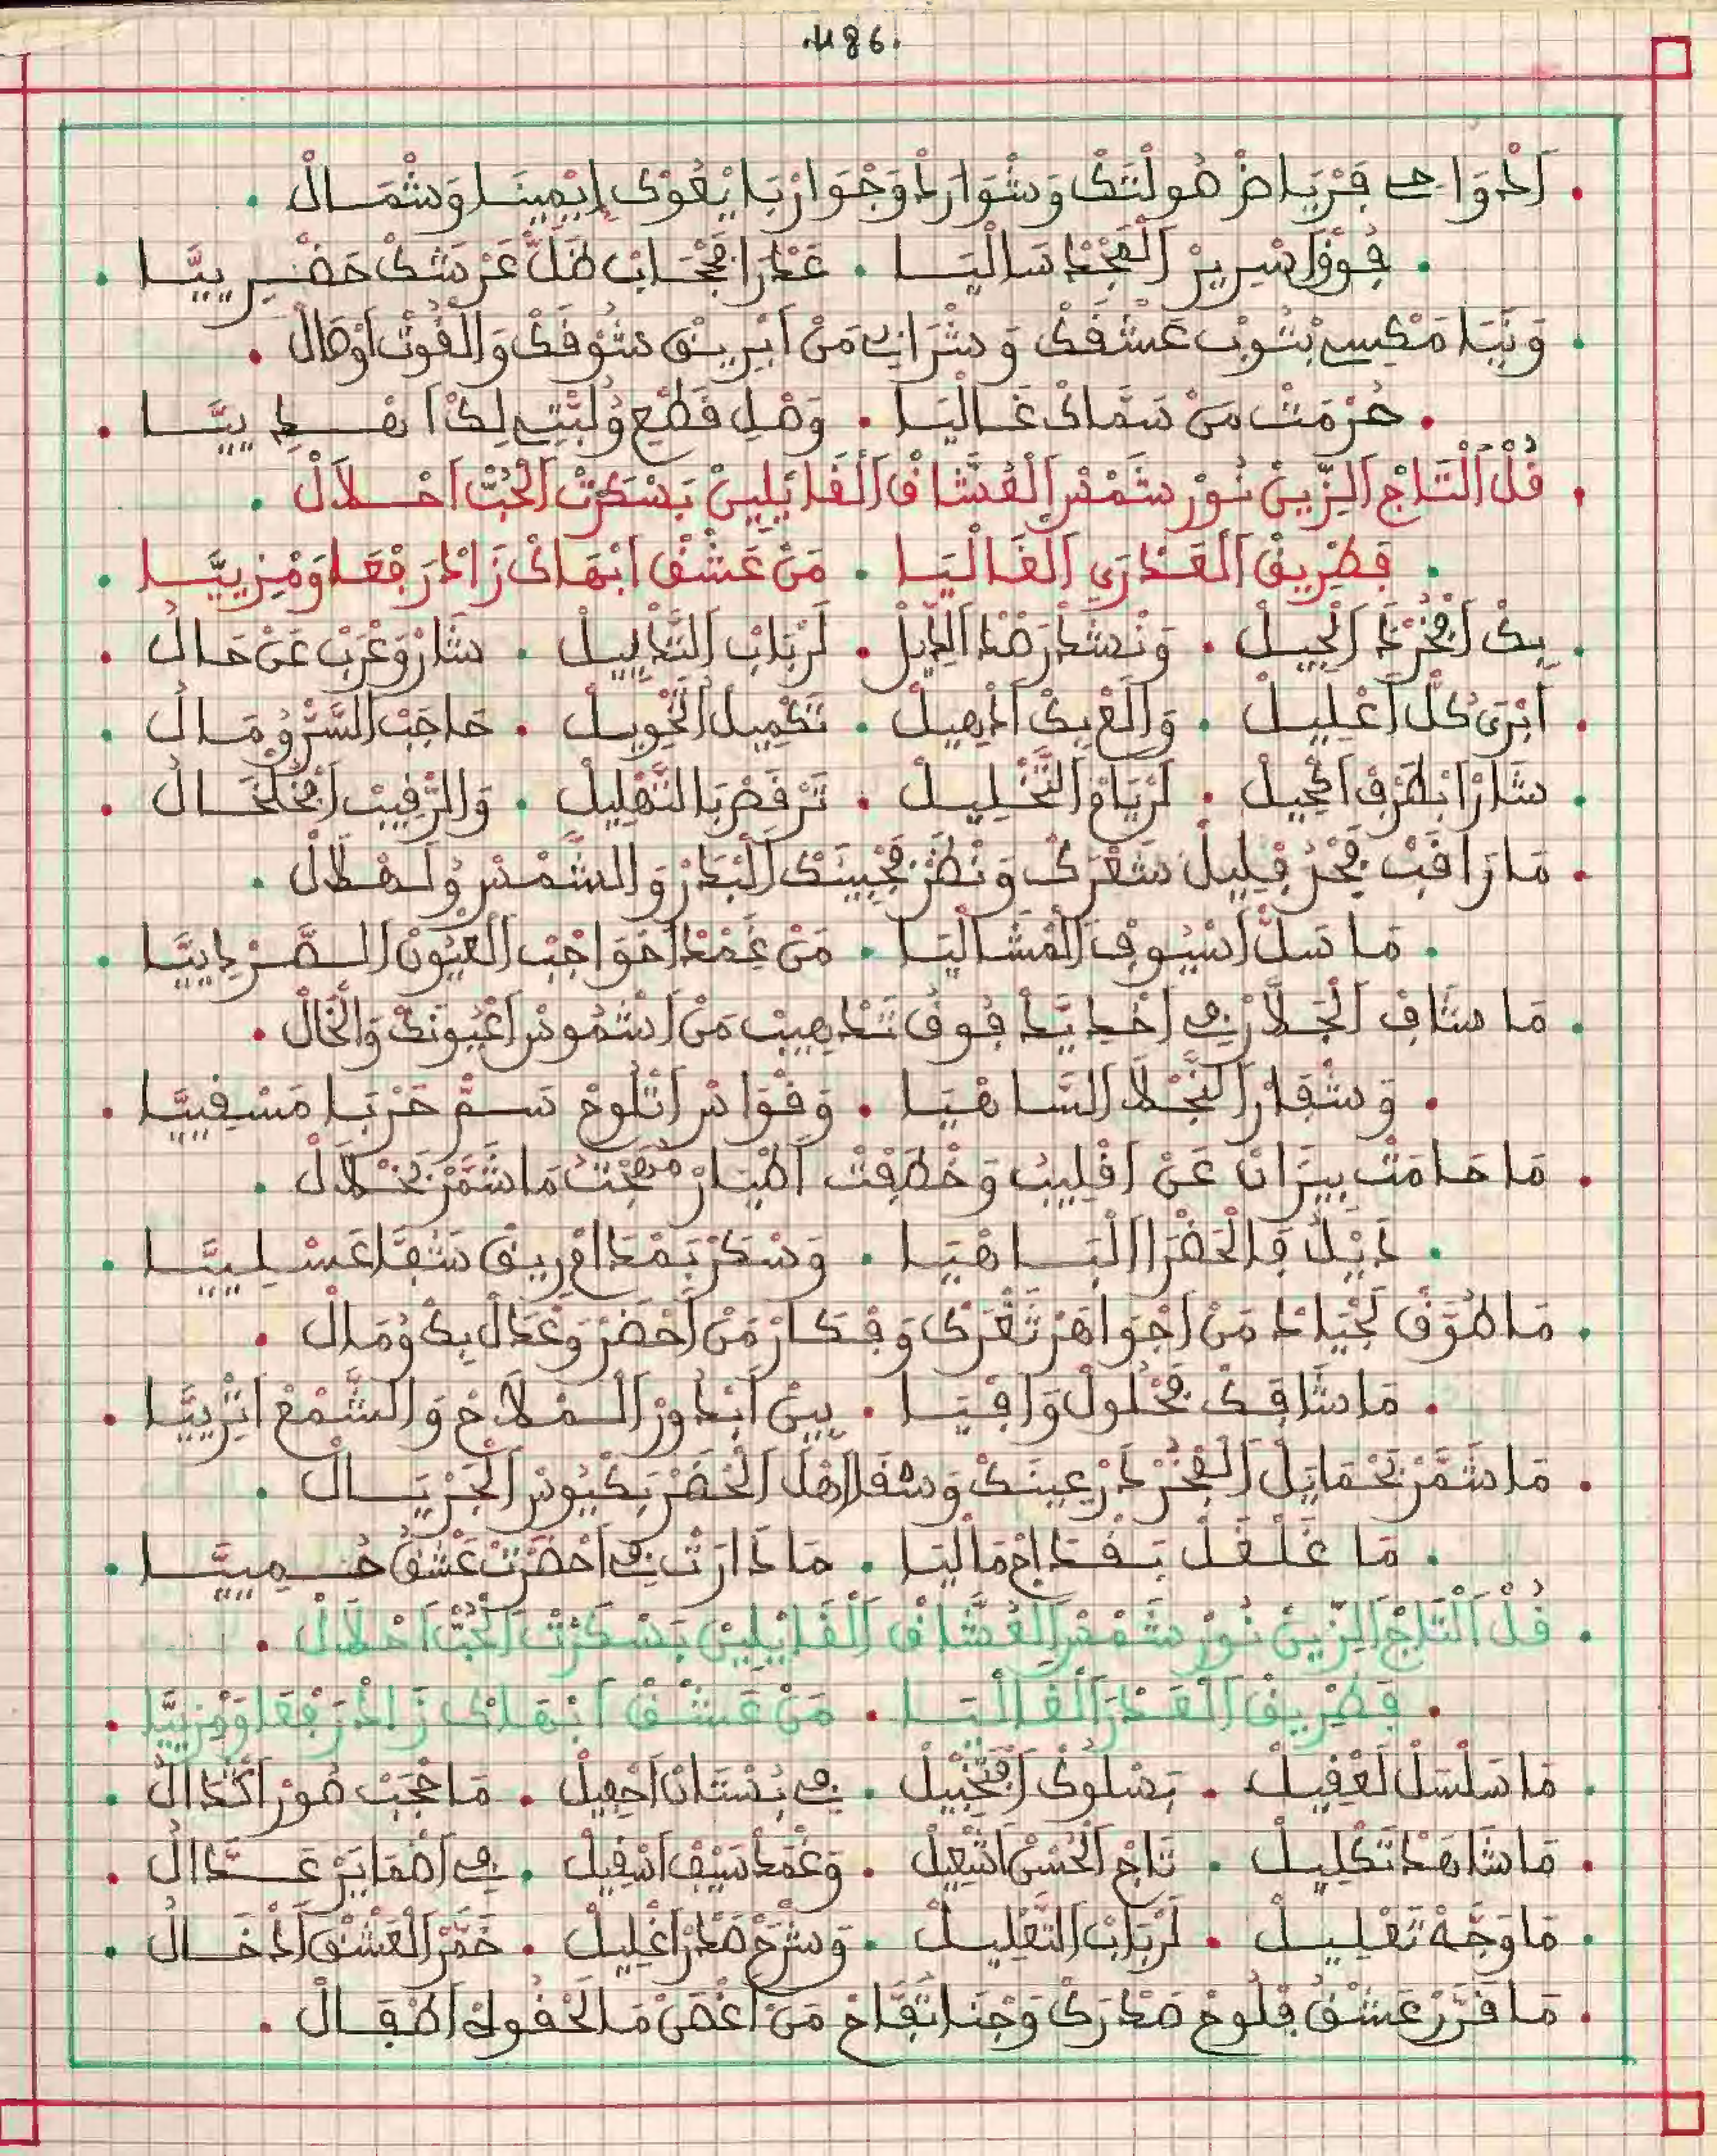 .1186.
. اَدْوَاحِي فَرْيَاضْ صُولْتَكْ وَشْوَارَدْ وَجْوَارْ بَايْعُوكْ إيْمِينَا وَشْمَالْ .
. فُوقْ اَسْرِيرْ اَلْمَجْدْ سَالْيَا . عَدْرَا فَحْجَابْ ظَلّْ عَرْشَكْ خَضْرِييَّا .
. وَنَيَا مَكْسِي بْتُوبْ عَشْقَكْ وَشْرَابِي مَنْ اَبْرِيقْ شُوقَكْ وَالْقُوتْ اَوْصَالْ .
. حُرْمَتْ مَنْ سَمَّاكْ غَالْيَا . وَصْلِي قَطْعْ وُلِيتِي لِكْ اَنْهْدِييَّا .
. قُلْ اَلْتَاجْ اَلزِّينْ نُورْ شَمْسْ اَلْعُشَّاقْ اَلْقَايْلِينْ بَسْكَرْتْ اَلْحُبّْ اَحْلاَلْ .
. فَطْرِيقْ اَلْعَدْرَى اَلْغَالْيَا . مَنْ عَشْقْ اَبْهَاكْ زَادْ رَفْعَا وَمْزِييَّا .
. بِكْ اَفْخَرْتْ اَلْجِيلْ . وَنْشَدْ رَصْدْ اَلدِّيلْ . لَرْبَابْ اَلتَّدْيِيلْ . شَارْ وَعْرَبْ عَنْ حَالُ .
. اَبْرَى كُلّْ اَعْلِيلْ . وَالْعِيكْ اَدْهِيلْ . تَكْمِيلْ اَلتَّحْوِيلْ . حَاجَبْ اَلسَّرّْ وُمَالُ .
. شَارْ اَبْطَرْفْ اَكْحِيلْ . لَرْيَامْ اَلنَّخْلِيلْ . تَرْقَصْ بَالتَّهْلِيلْ . وَالرَّقِيبْ اَفْخَلْخَالُ .
. مَا رَاقَبْ فَجْرْ فَلِيلْ شَعْرَكْ وَنْظَرْ فَجْبِينَكْ اَلْبَدْرْ وَالشَّمْسْ وُلَهْلاَلْ .
. مَا سَلّْ اَسْيُوفْ اَلْمْشَالْيَا . مَنْ غَمْدْ اَحْوَاجْبْ اَلْعْيُونْ اَلصَّرْدِييَّا .
. مَا شَافْ اَلْجَلاَّرْ فِي اَخْدِيَّدْ فُوقْ تَدْهِيبْ مَنْ اَشْمُوسْ اَعْيُونَكْ وَالْخَالْ .
. وَشْفَارْ اَلنَّجْلاَ اَلسَّاهْيَا . وَقْوَاسْ اَتْلُوحْ سَمّْ حَرْبَا مَسْقِييَّا .
. مَا حَامَتْ بِيزَانْ عَنْ اَقْلِيبُ وَخْطَفْتْ اَطْيَارْ مُهْجْتُ مَا شَمَّرْ بَخْلاَلْ .
. دَيْلُ فَالْحَضْرَا اَلْبَاهْيَا . وَسْكَرْ بَمْدَامْ رِيقْ شَفَّا عَسْلِييَّا .
. مَا طُوَّقْ لَجْيَادْ مَنْ اَجْوَاهَرْ ثَغْرَكْ وَفْكَارْ مَنْ اَحْضَرْ وَعْدَالْ بِكْ وُمَالْ .
. مَا شَافَكْ فَحْلُولْ وَافْيَا . بِينْ اَبْدُورْ اَلْمْلاَحْ وَالشَّمْعْ اَثْرِييَّا .
. مَا شَمَّرْ بَحْمَايَلْ اَلْفْخَرْ دَرْعِينَكْ وَسْقَا اَهْلْ اَلْحَضْرْ بَكْيُوسْ اَلْجَرْيَالْ .
. مَا غَلْغَلْ بَقْدَاحْ مَالْيَا . مَا دَارَتْ فِي اَحْضَرْتْ عَشْقُ حُمِييَّا .
. قُلْ اَلْتَاجْ اَلزِّينْ نُورْ شَمْسْ اَلْعُشَّاقْ اَلْقَايْلِينْ بَسْكَرْتْ اَلْحُبّْ اَحْلاَلْ .
. فَطْرِيقْ اَلْعَدْرَ اَلْغَالْيَا . مَنْ عَشْقْ اَبْهَاكْ زَادْ رَفْعَا وَمْزِييَّا .
. مَا سَلْسَلْ لَعْقِيلْ . بَصْلُوكْ اَفْتَخْبِيلْ . فِي بُسْتَانْ اَحْفِيلْ . مَا حْجَبْ صُورْ اَكْدَالُ .
. مَا شَاهَدْ تَكْلِيلْ . تَاجْ اَلْحُسْنْ اَتْبِيعِيلْ . وَغْمَدْ سَيْفْ اَسْقِيلْ . فِي اَضْمَايَرْ عَدَّالُ .
. مَا وَجَّهْ تَقْلِيلْ . لَرْبَابْ اَلتَّعْلِيلْ . وَشْرَحْ صَدْرْ اَعْلِيلْ . خَمْرْ اَلْعَشْقْ اَدْخَالُ .
. مَا قَرَّرْ عَشْقُ فْلُوحْ صَدْرَكْ وَجْنَا تَفَّاحْ مَنْ اَغْصَنْ مَا لَحْقُوكْ اَطْفَالْ .